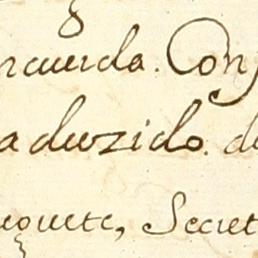 ncuerda. Con
aduzido. de
uquete, Secret